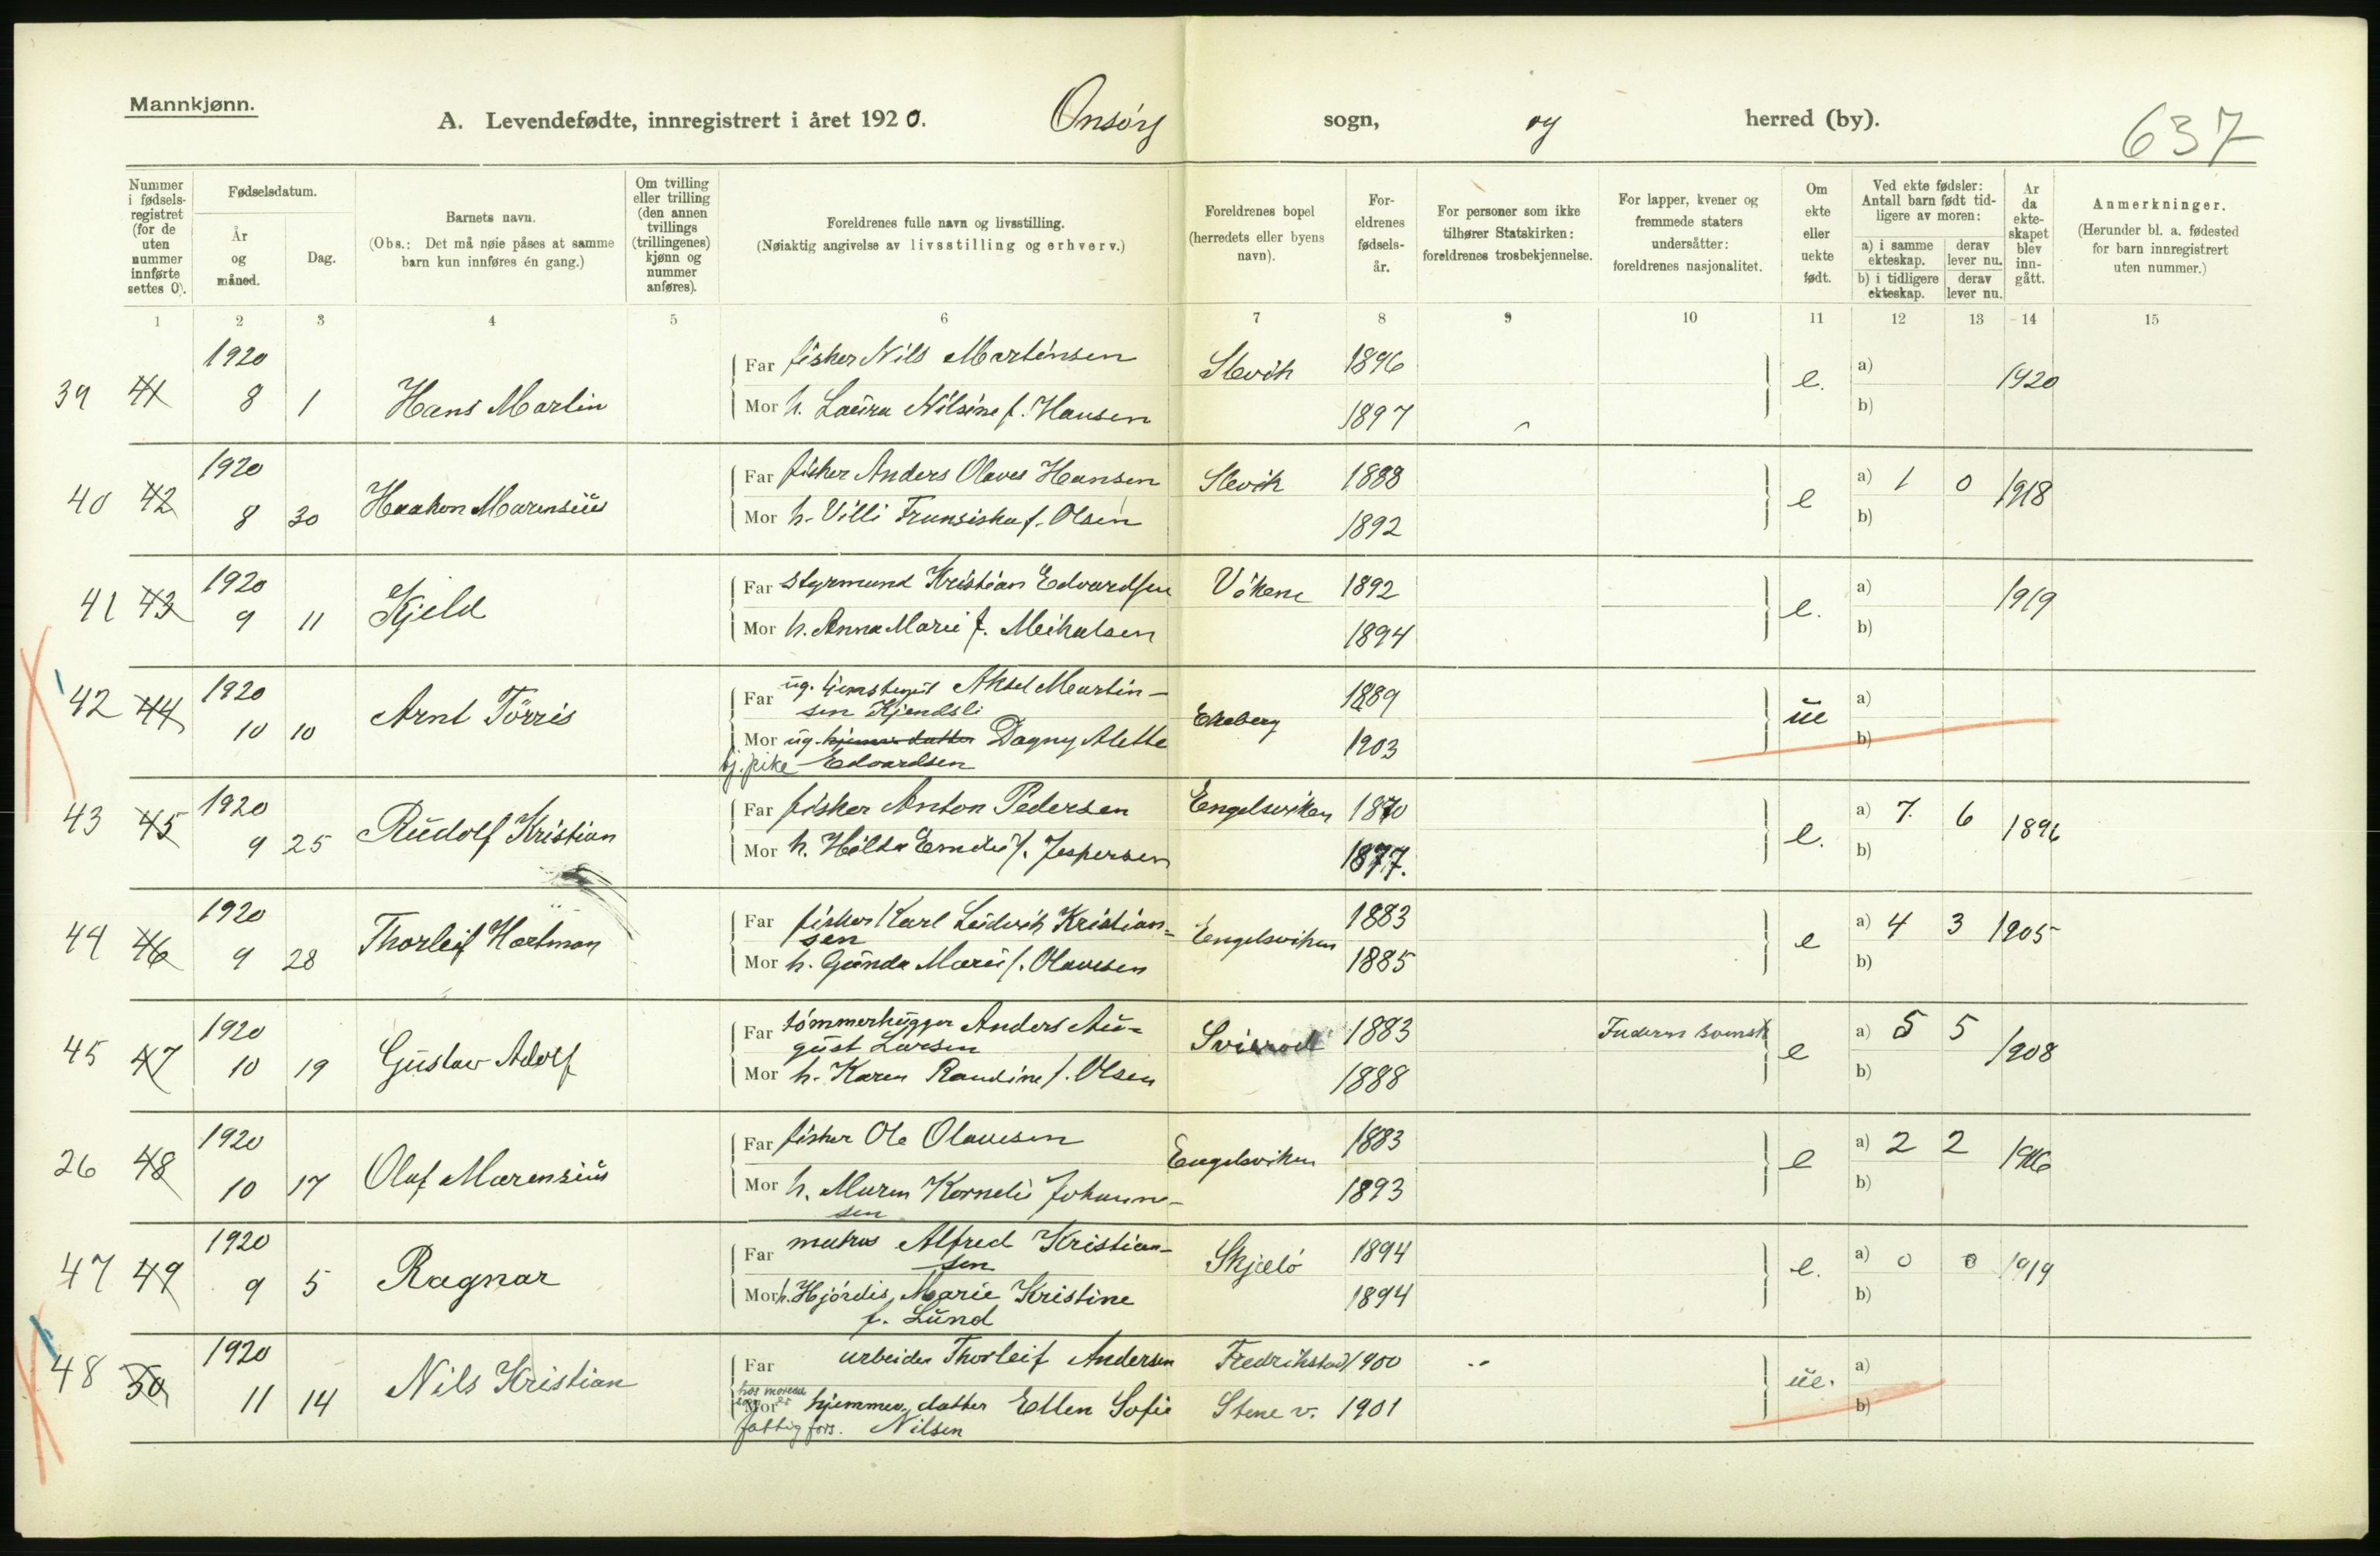 Mannkjønn.
A. Levendefødte, innregistrert i året 1920. Onsøy sogn, og herred (by). 637
Nummer i fødsels-registret (for de uten nummer innførte settes 0).
Fødselsdatum.
År og måned.
Dag.
Barnets navn.
(Obs.: Det må nøie påses at samme barn kun innføres én gang.)
Om tvilling eller trilling (den annen tvillings (trillingenes) kjønn og nummer anføres).
Foreldrenes fulle navn og livsstilling.
(Nøiaktig angivelse av livsstilling og erhverv.)
Foreldrenes bopel (herredets eller byens navn).
For-eldrenes fødsels-år.
For personer som ikke tilhører Statskirken: foreldrenes trosbekjennelse.
For lapper, kvener og fremmede staters undersåtter: foreldrenes nasjonalitet.
Om ekte eller uekte født.
Ved ekte fødsler: Antall barn født tid-ligere av moren:
a) i samme ekteskap. derav lever nu.
b) i tidligere ekteskap. derav lever nu.
År da ekte-skapet blev inn-gått.
Anmerkninger.
(Herunder bl. a. fødested for barn innregistrert uten nummer.)
1 2 3 4 5 6 7 8 9 10 11 12 13 14 15
1920 Far fisker Nils Martinsen Slevik 1896 a)
39 41 8 1 Hans Martin e. 1920
Mor h. Laura Nilsine f. Hansen 1897 b)
1920 Far fisker Anders Olaves Hansen Slevik 1888 a) 1 0 1918
40 42 8 30 Haakon Marensius e
Mor h. Villi Fransiska f. Olsen 1892 b)
1920 Far styrmand Kristian Edvardsen Vikene 1892 a) 1919
41 43 9 11 Kjeld e.
Mor h. Anna Marie f. Meikalsen 1894 b)
1920 Far ug. Aksel Martin-
sen Kjendsli 1889 a)
42 44 10 10 Arnt Törris Ekeberg ue
Mor ug. hjemmev. datter Dagny Alette 1903 b)
tj. pike Edvardsen
1920 Far fisker Anton Pedersen Engelsviken 1870 a) 7. 6 1896
43 45 9 25 Rudolf Kristian e.
Mor h. Hilda Emelie f. Jespersen 1877. b)
1920 Far fisker Karl Ludvik Kristian=
sen 1883 a) 4 3 1905
44 46 9 28 Thorleif Hartman Engelsviken e
Mor h. Gunda Marie f. Olavesen 1885 b)
1920 Far tømmerhugger Anders Au=
gust Larsen 1883 Faderen svensk a) 5 5
45 47 10 19 Gustav Adolf e 1908
Mor h. Karen Randine f. Olsen 1888 b)
1920 Far fisker Ole Olavesen 1883 a) 2 2
26 48 10 17 Olaf Marensius Engelsviken e 1916
Mor h. Maren Kornelie Johanne-
sen 1893 b)
1920 Far matros Alfred Kristian-
sen Skjælø 1894 a) 0 0 1919
47 49 9 5 Ragnar e.
Mor h. Hjördis Marie Kristine 1894 b)
f. Lund
1920 Far arbeider Thorleif Andersen Fredrikstad 1900 a)
48 50 11 14 Nils Kristian ue.
Mor hjemmev. datter Ellen Sofie Stene v. 1901 b)
fattig fors. Nilsen